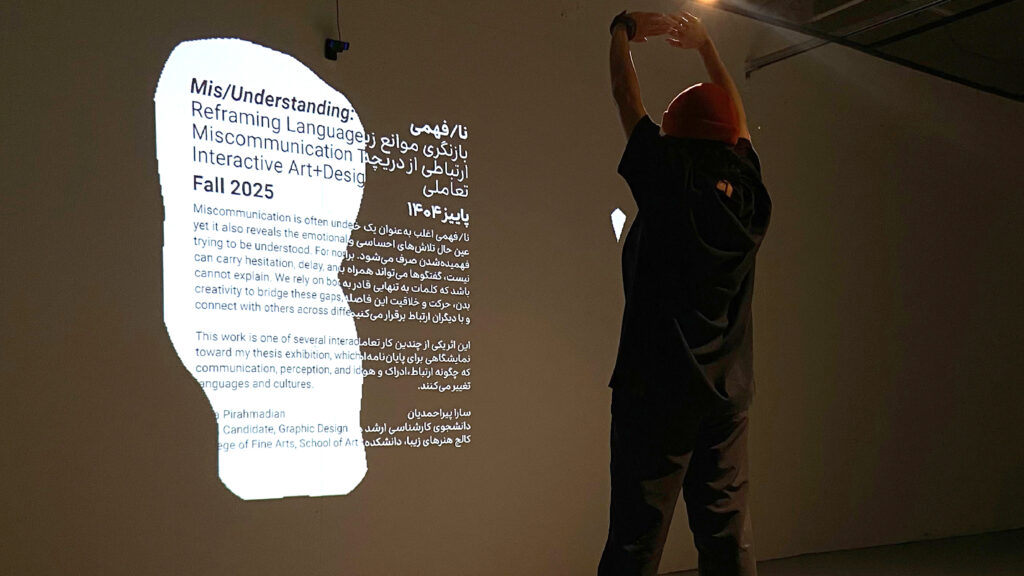 Mis/Understanding:
Reframing Language
Miscommunication T
Interactive Art+Desig
Fall 2025
Miscommunication is often unde
yet it also reveals the emotional
trying to be understood. For
can carry hesitation, delay, and
cannot explain. We rely on
creativity to bridge these gaps,
connect with others across diffe
This work is one of several intera
toward my thesis exhibition, which
communication, perception, and id
languages and cultures.
a Pirahmadian
Candidate, Graphic Design
ege of Fine Arts, School of Art
نا/فهمی
بازنگری موانع
ارتباطی از دریچه
تعاملی
پاییز ۱۴۰۴
نا/فهمی اغلب به‌عنوان یک
عین حال تلاش‌های احساسی و
فهمیده‌شدن صرف می‌شود.
نیست، گفتگوها می‌تواند همراه
باشد که کلمات به تنهایی قادر به
بدن، حرکت و خلاقیت این فاصله
و با دیگران ارتباط برقرار می‌کنیم
این اثر یکی از چندین کار تعاملی
نمایشگاهی برای پایان‌نامه
که چگونه ارتباط، ادراک و
تغییر می‌کنند.
سارا پیراحمدیان
دانشجوی کارشناسی ارشد
کالج هنرهای زیبا، دانشکده